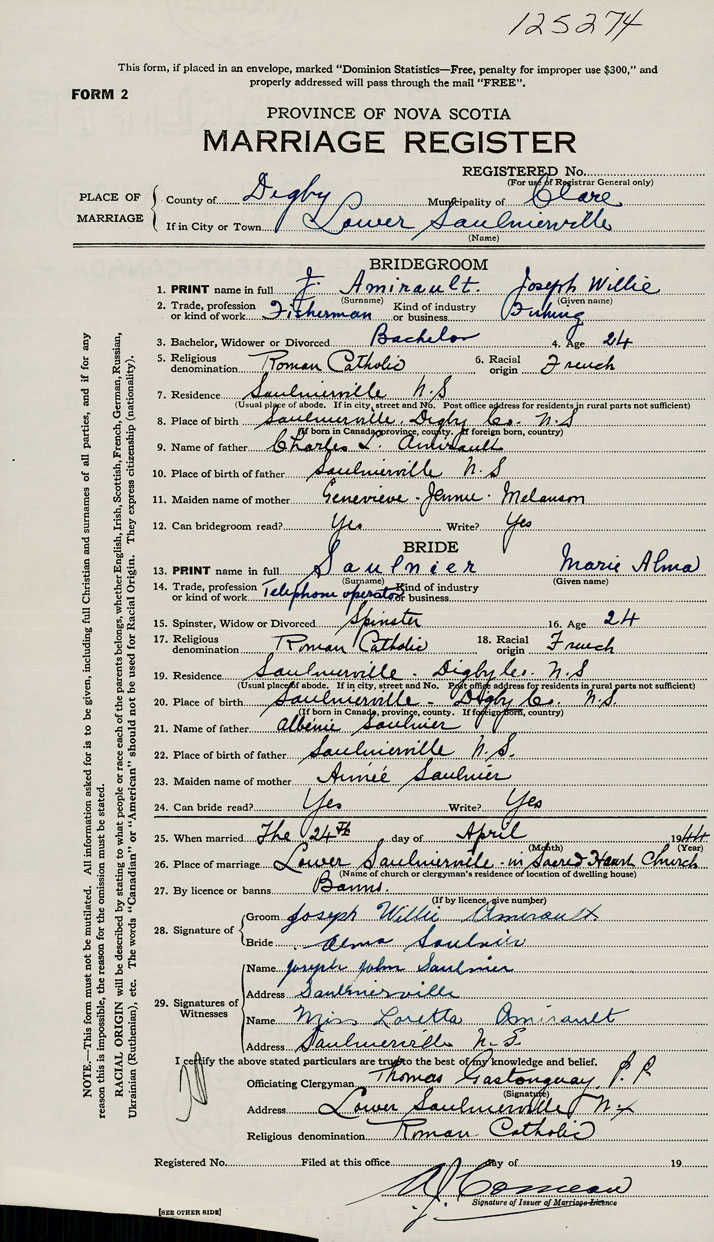 125274
This form, if placed in an envelope, marked “Dominion Statistics—Free, penalty for improper use $300,” and
properly addressed will pass through the mail “FREE”.
FORM 2
PROVINCE OF NOVA SCOTIA
MARRIAGE REGISTER
REGISTERED No.
(For use of Registrar General only)
PLACE OF MARRIAGE
County of Digby Municipality of Clare
If in City or Town Lower Saulnierville
(Name)
BRIDEGROOM
1. PRINT name in full J. Amirault. Joseph Willie
(Surname) (Given name)
2. Trade, profession or kind of work Fisherman Kind of industry or business Fishing
3. Bachelor, Widower or Divorced Bachelor 4. Age 24
5. Religious denomination Roman Catholic 6. Racial origin French
7. Residence Saulnierville N.S
(Usual place of abode. If in city, street and No. Post office address for residents in rural parts not sufficient)
8. Place of birth Saulnierville, Digby Co. N.S
(If born in Canada, province, county. If foreign born, country)
9. Name of father Charles L. Amirault
10. Place of birth of father Saulnierville N.S
11. Maiden name of mother Genevieve - Jennie - Melanson
12. Can bridegroom read? Yes Write? Yes
BRIDE
13. PRINT name in full Saulnier Marie Alma
(Surname) (Given name)
14. Trade, profession or kind of work Telephone operator Kind of industry or business
15. Spinster, Widow or Divorced Spinster 16. Age 24
17. Religious denomination Roman Catholic 18. Racial origin French
19. Residence Saulnierville - Digby Co. N.S
(Usual place of abode. If in city, street and No. Post office address for residents in rural parts not sufficient)
20. Place of birth Saulnierville - Digby Co. N.S.
(If born in Canada, province, county. If foreign born, country)
21. Name of father Albénie Saulnier
22. Place of birth of father Saulnierville N.S.
23. Maiden name of mother Aimée Saulnier
24. Can bride read? Yes Write? Yes
25. When married The 24th day of April 1944
(Month) (Year)
26. Place of marriage Lower Saulnierville - in Sacred Heart Church
(Name of church or clergyman's residence or location of dwelling house)
27. By licence or banns Banns.
(If by licence, give number)
28. Signature of
Groom Joseph Willie Amirault
Bride Alma Saulnier
29. Signatures of Witnesses
Name Joseph John Saulnier
Address Saulnierville
Name Miss Loretta Amirault
Address Saulnierville N.S.
I certify the above stated particulars are true to the best of my knowledge and belief.
Officiating Clergyman Thomas Gastonguay, P.P.
(Signature)
Address Lower Saulnierville N.S
Religious denomination Roman Catholic
Registered No. Filed at this office day of 19
A.J. Comeau
Signature of Issuer of Marriage Licence
[SEE OTHER SIDE]
NOTE.—This form must not be mutilated. All information asked for is to be given, including full Christian and surnames of all parties, and if for any
reason this is impossible, the reason for the omission must be stated.
RACIAL ORIGIN will be described by stating to what people or race each of the parents belongs, whether English, Irish, Scottish, French, German, Russian,
Ukrainian (Ruthenian), etc. The words “Canadian” or “American” should not be used for Racial Origin. They express citizenship (nationality).